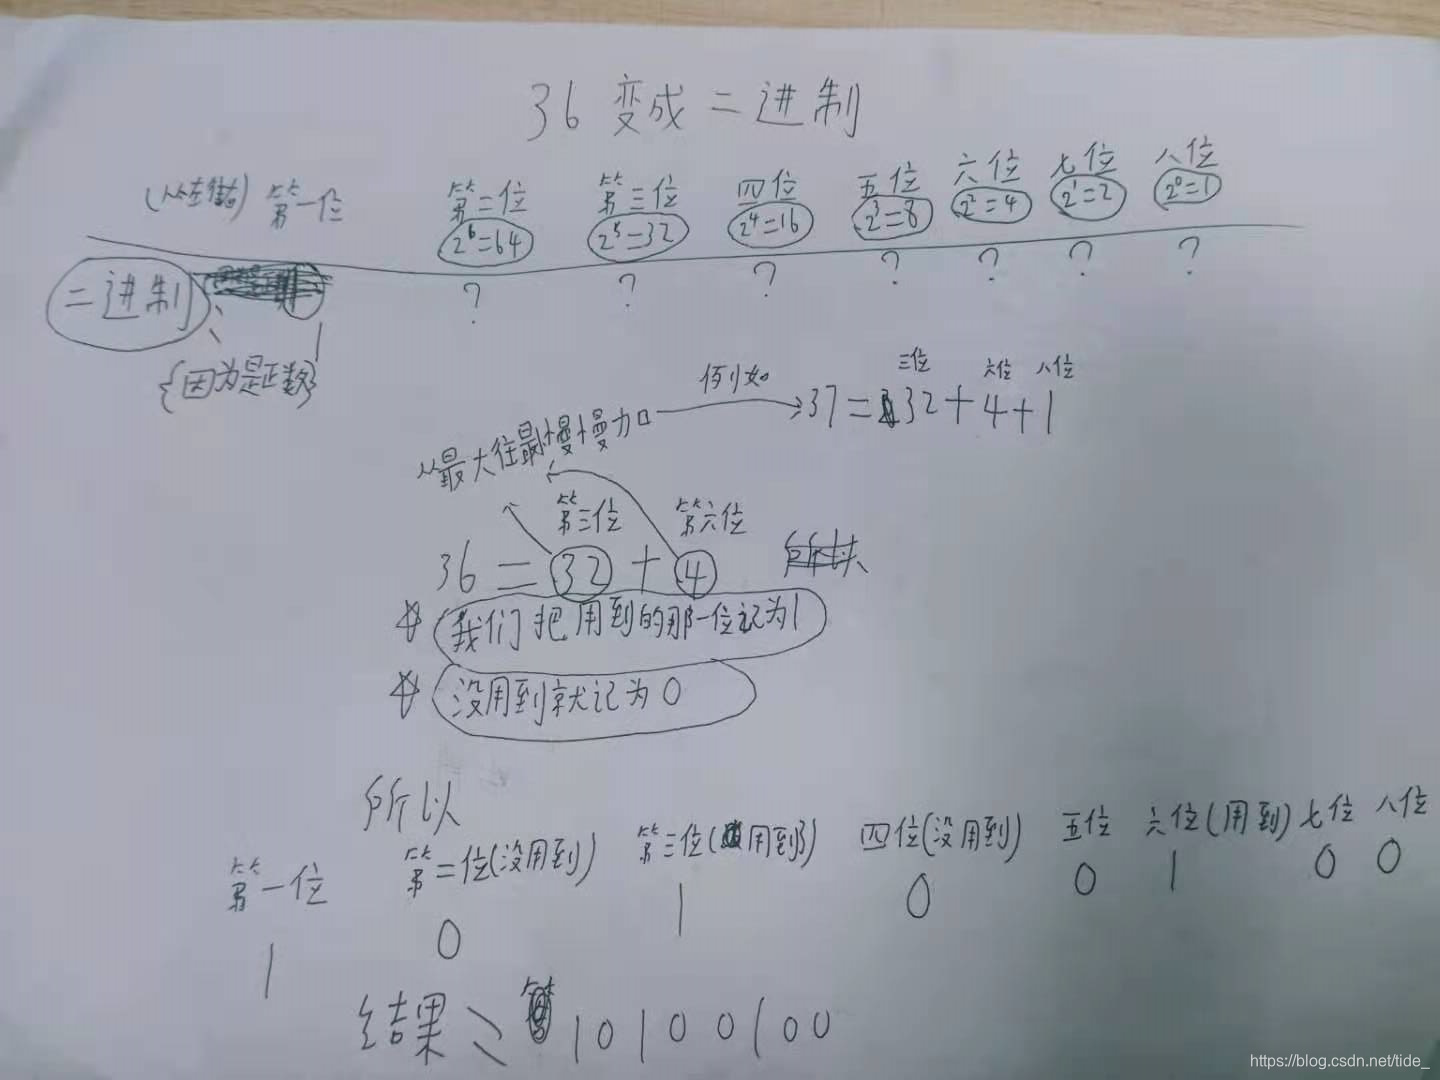 36 变成二进制
(从左往右) 第一位 第二位 第三位 四位 五位 六位 七位 八位
2⁶=64 2⁵=32 2⁴=16 2³=8 2²=4 2¹=2 2⁰=1
二进制 ? ? ? ? ? ? ?
1
{因为是正数}
例如
三位 六位 八位
37=32+4+1
从最大往最小慢慢加
第三位 第六位
36=32+4
我们把用到的那一位记为1
没用到就记为0
所以
第一位 第二位(没用到) 第三位(用到) 四位(没用到) 五位 六位(用到) 七位 八位
1 0 1 0 0 1 0 0
结果 10100100
https://blog.csdn.net/tide_